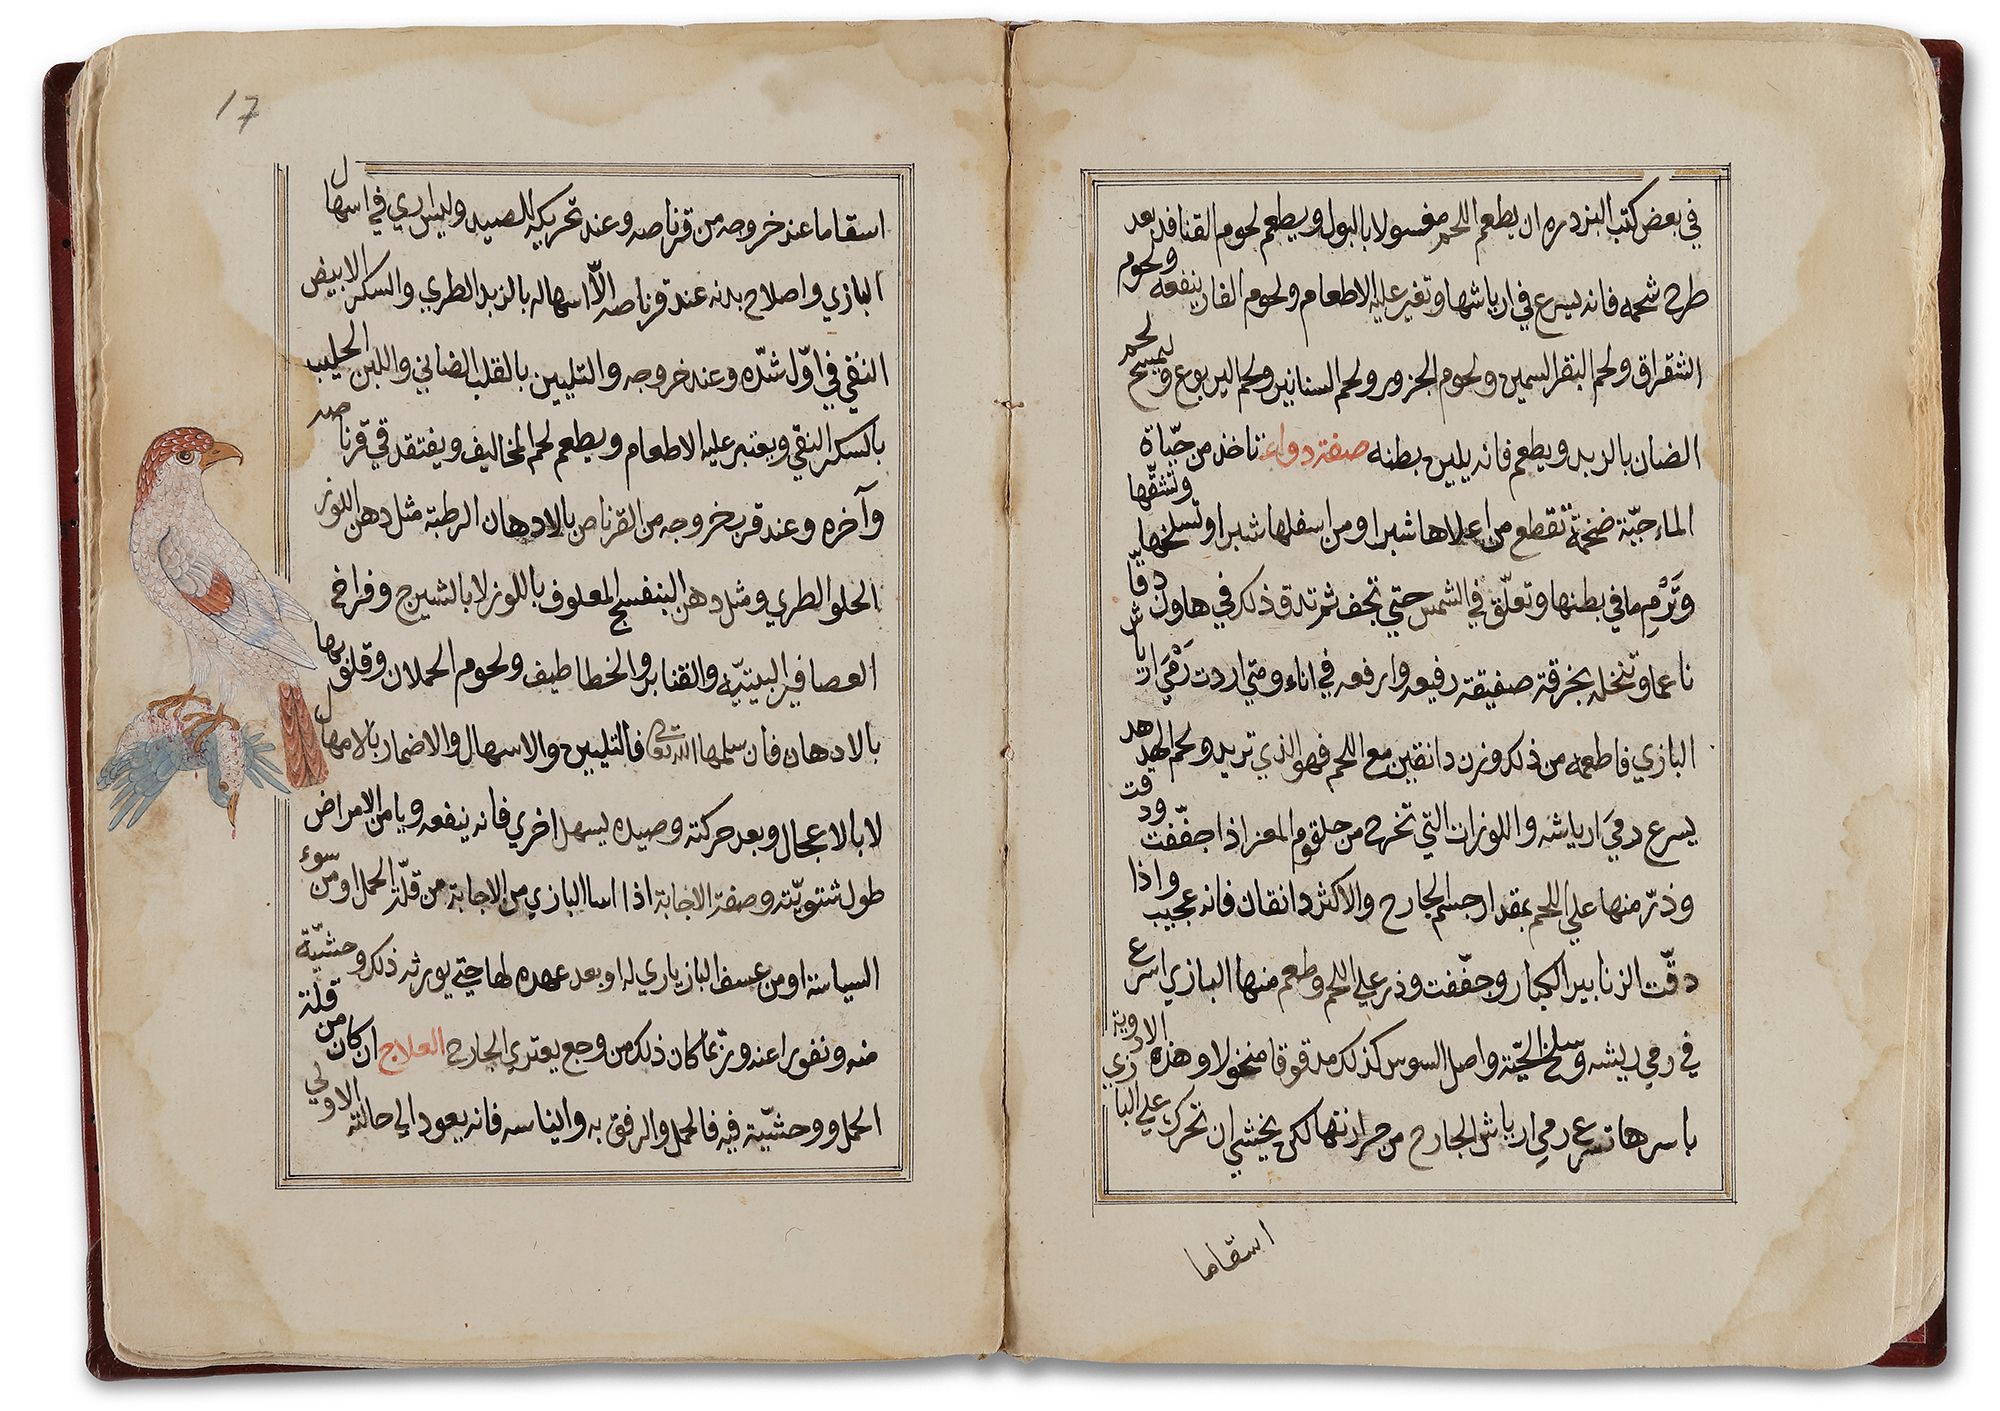 في بعض كتب البزدره ان يطعم اللحم مغسولا بالبول ويطعم لحوم القنافد بعد
طرح شحمه فانه يسرع في ارياشها وتغير عليه الاطعام ولحوم الفار ينفعه ولحوم
الشقراق ولحم البقر السمين ولحوم الجزور ولحم السنانير ولحم اليربوع ويمسح لحم
الضان بالزبد ويطعم فانه يلين بطنه صفة دواء تاخذ من حيّاة
الماء حيّة ضخمة تقطع من اعلاها شبرا ومن اسفلها شبرا وتسلخها وتشقّها
وتَرْمِ ما في بطنها وتعلّق في الشمس حتي تجف ثم تدق ذلك في هاون دقّا
ناعما وتنخله بخرقة صفيقة رفيعه وارفعه في اناء ومتي اردت رَمْيَ ارياش
البازي فاطعمه من ذلك وزن دانقين مع اللحم فهو الذي تريد ولحم الهدهد
يسرع رمي ارياشه واللوزات التي تخرج من حلقوم المعز اذا جفّفت ودقت
وذرّ منها علي اللحم بمقدار جسم الجارح والاكثر دانقان فانه عجيب واذا
دقّت الزنابير الكبار وجفّفت وذر علي اللحم وطعم منها البازي اسرع
في رمي ريشه وسلخ الحيّة واصل السوس كذلك مدقوقا منخولا وهذه الادوية
باسرها تسرع رمي ارياش الجارح من حرارتها لكن يخشي ان تحرك علي البازي
اسقاما
17
اسقاما عند خروجه من قرناصه وعند تحريكه للصيد وليس اري في اسهال
البازي واصلاح بدنه عند قرناصه الّا اسهاله بالزبد الطري والسكر الابيض
النقي في اوّل شدّه وعند خروجه والتليين بالقلب الضاني واللبن الحليب
بالسكر النقي ويعتبر عليه الاطعام ويطعم لحم المخاليف ويفتقد في قرناصه
وآخره وعند قرب خروجه من القرناص بالادهان الرطبة مثل دهن اللوز
الحلو الطري ومثل دهن البنفسج المعلوف باللوز لا بالشيرج وفراخ
العصافير البيتيّه والقنابر والخطاطيف ولحوم الحملان وقلوبها
بالادهان فان سلمها الله تعالي فالتليين والاسهال والاضمار بالامهال
لا بالاعجال وبعد حركته وصيده يسهل اخري فانه ينفعه ويامن الامراض
طول شتويّته وصفة الاجابة اذا اسا البازي من الاجابة من قلّة الحمل او من سوء
السياسة او من عسف البازياري له او بعد عهده لها حتي يورثه ذلك وحشيّة
منه ونفورا عنه وربّما كان ذلك من وجع يعتري الجارح العلاج ان كان من قلة
الحمل ووحشيّة فيه فالحمل والرفق به وايناسه فانه يعود الي حالته الاولي